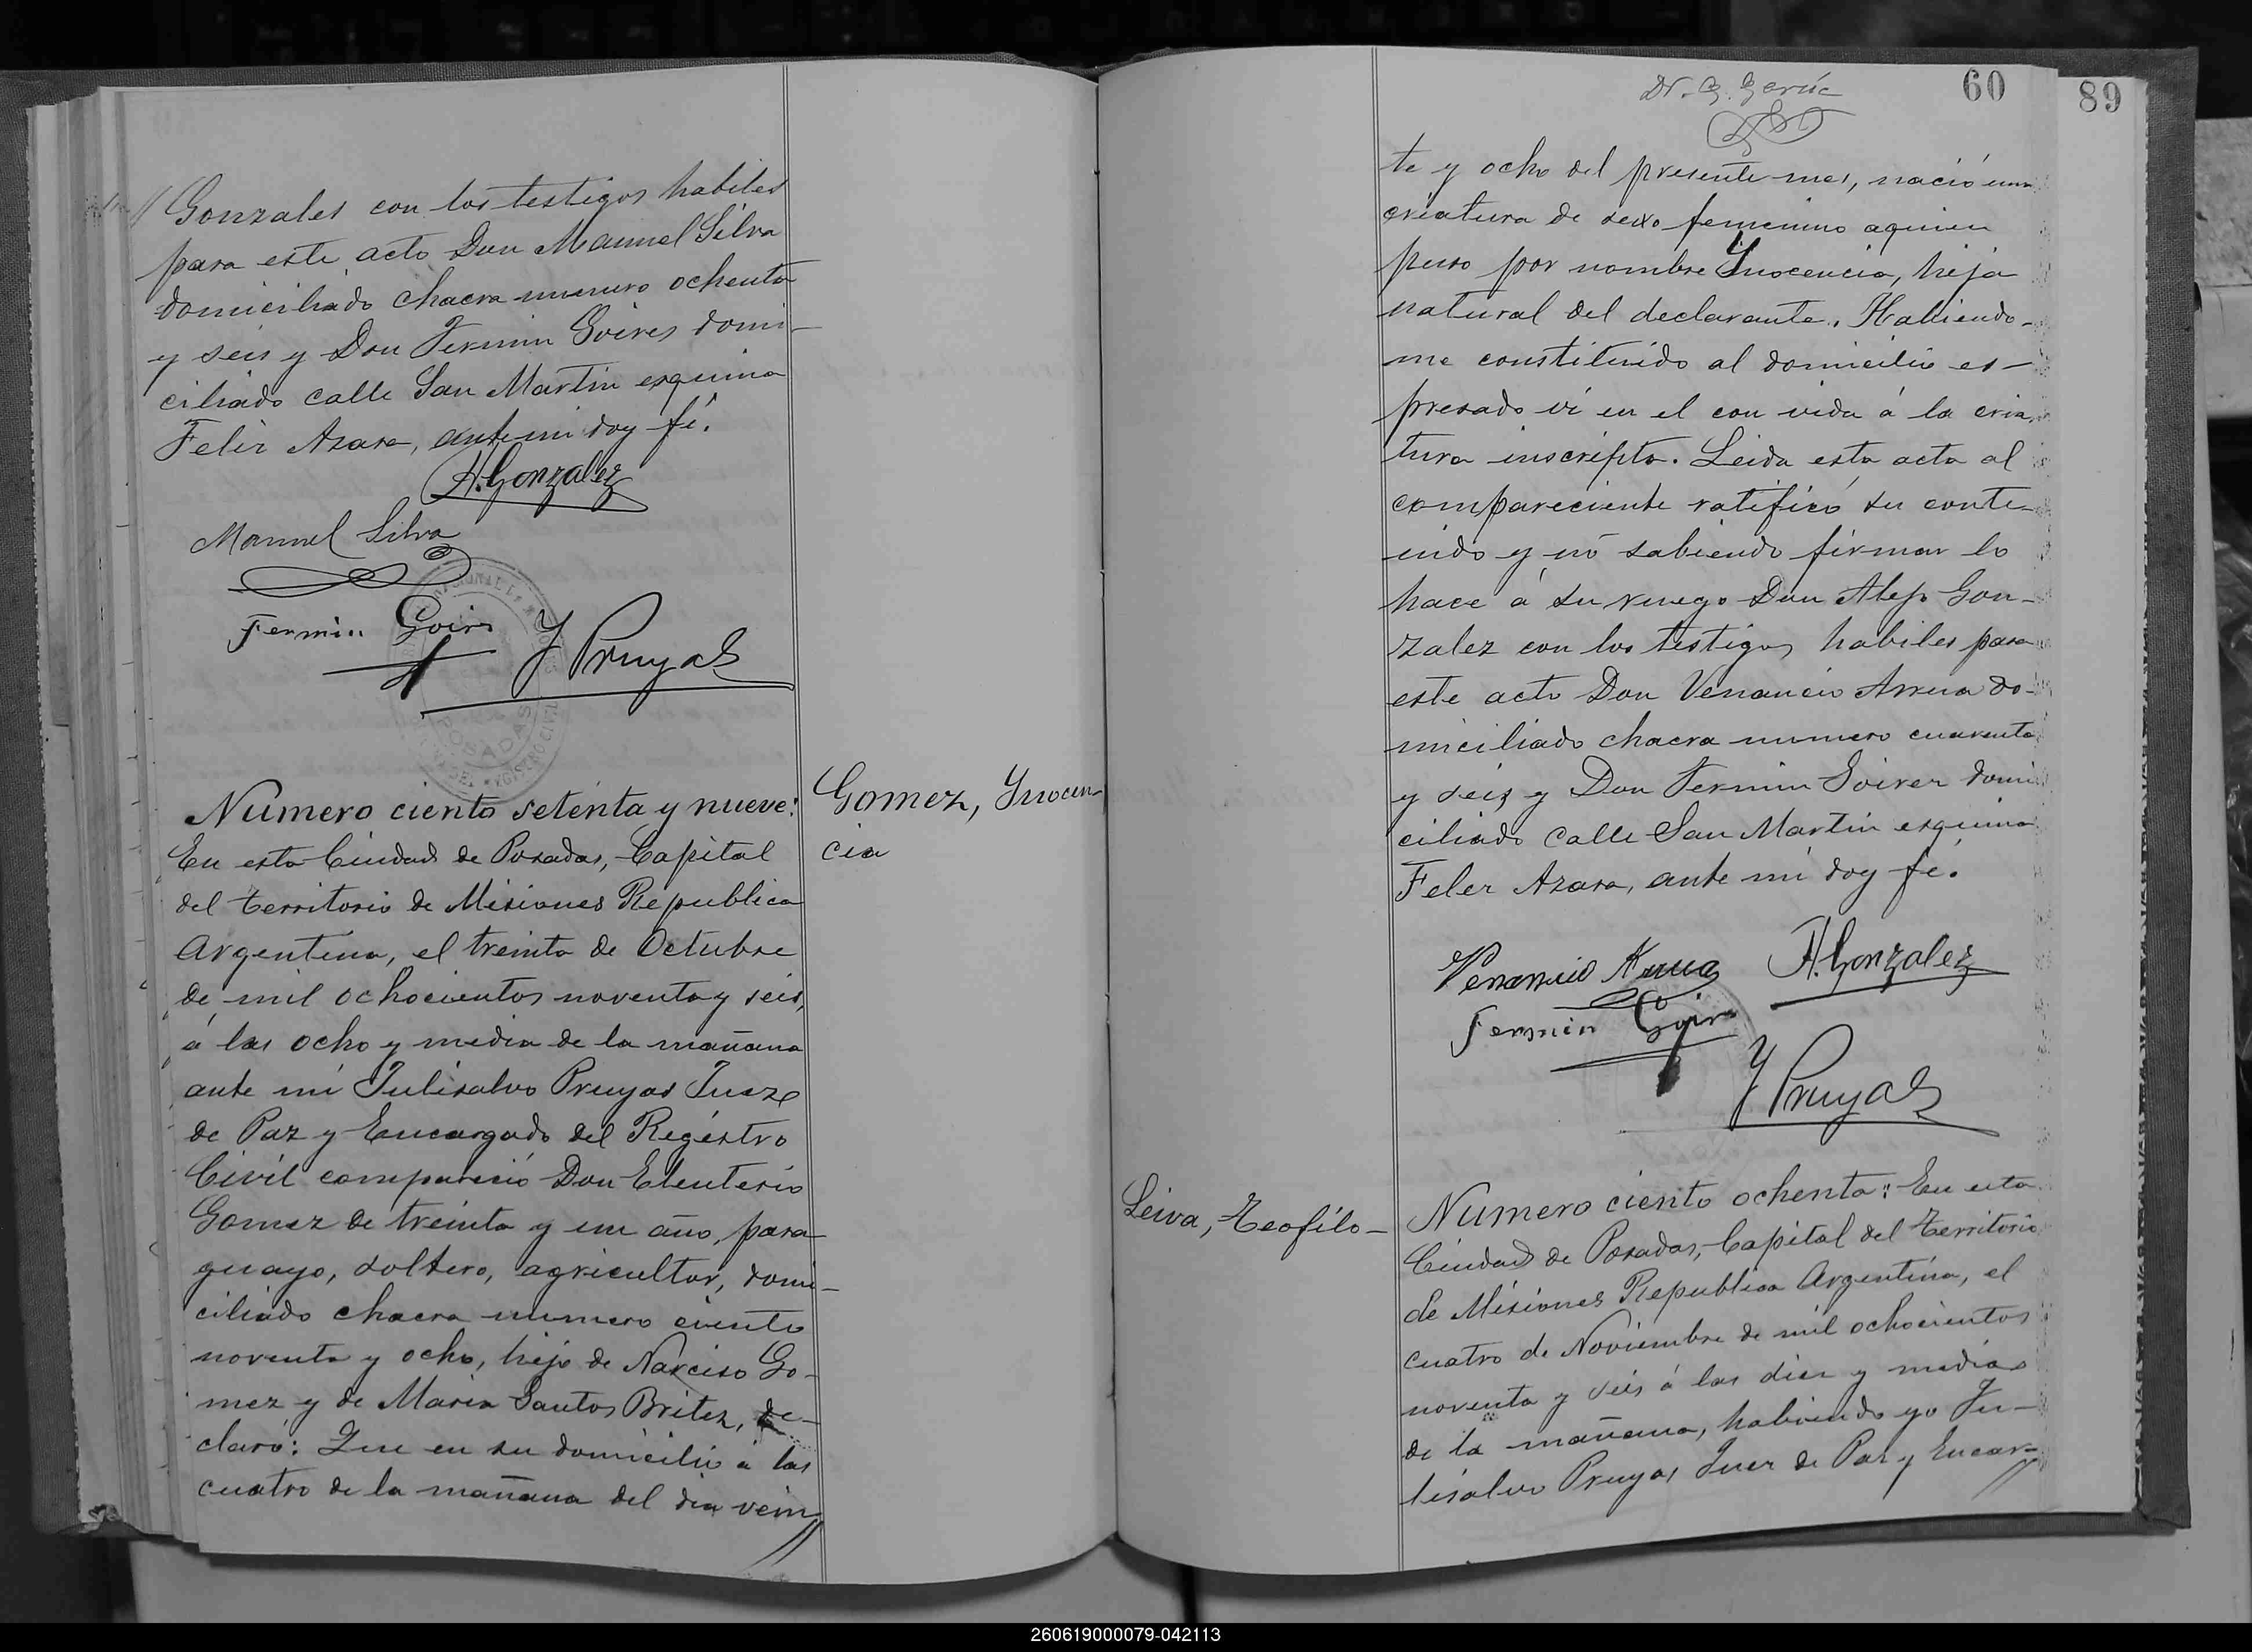 Gonzales con los testigos habiles
para este acto Don Manuel Silva
domiciliado chacra numero ochenta
y seis y Don Fermin Goires domi-
ciliado calle San Martin esquina
Felix Azara, ante mi doy fé.
A. Gonzalez
Manuel Silva
Fermin Goire
J Pruyas
POSADAS
Numero ciento setenta y nueve:
En esta Ciudad de Posadas, Capital
del territorio de Misiones Republica
Argentina, el treinta de Octubre
de mil ochocientos noventa y seis,
á las ocho y media de la mañana
ante mi Julisalvo Pruyas Juez
de Paz y Encargado del Registro
Civil compareció Don Eleuterio
Gomez de treinta y un año, para-
guayo, soltero, agricultor, domi-
ciliado chacra numero ciento
noventa y ocho, hijo de Narciso Go-
mez y de Maria Santos Britez, de-
claró: Que en su domicilio á las
cuatro de la mañana del dia vein
Gomez, Ynocen-
cia
60
89
te y ocho del presente mes, nació una
criatura de sexo femenino aquien
puso por nombre Ynocencia, hija
natural del declarante. Habiendo-
me constituido al domicilio es-
presado vi en el con vida á la cria
tura inscripta. Leida esta acta al
compareciente ratificó su conte-
nido y nó sabiendo firmar lo
hace á su ruego Don Alejo Gon-
zalez con los testigos habiles para
este acto Don Venancio Arrua do-
miciliado chacra numero cuarenta
y seis y Don Fermin Goires domi
ciliado calle San Martin esquina
Felez Azara, ante mi doy fé.
Venancio Arrua A. Gonzalez
Fermin Goire
J Pruyas
Leiva, Teofilo-
Numero ciento ochenta: En esta
Ciudad de Posadas, Capital del Territorio
de Misiones Republica Argentina, el
cuatro de Noviembre de mil ochocientos
noventa y seis á las diez y media
de la mañana, habiendo yo Ju-
lisalvo Pruyas Juez de Paz y Encar-
260619000079-042113